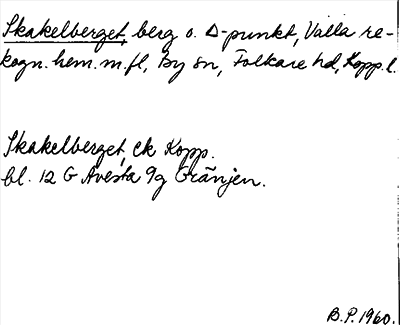 Skakelberget, berg o. Δ-punkt, Valla re-
kogn. hem. m. fl, By sn, Folkare hd, Kopp. l.
Skakelberget, ek Kopp.
bl. 12 G Avesta 9g Gränjen.
B.P. 1960.